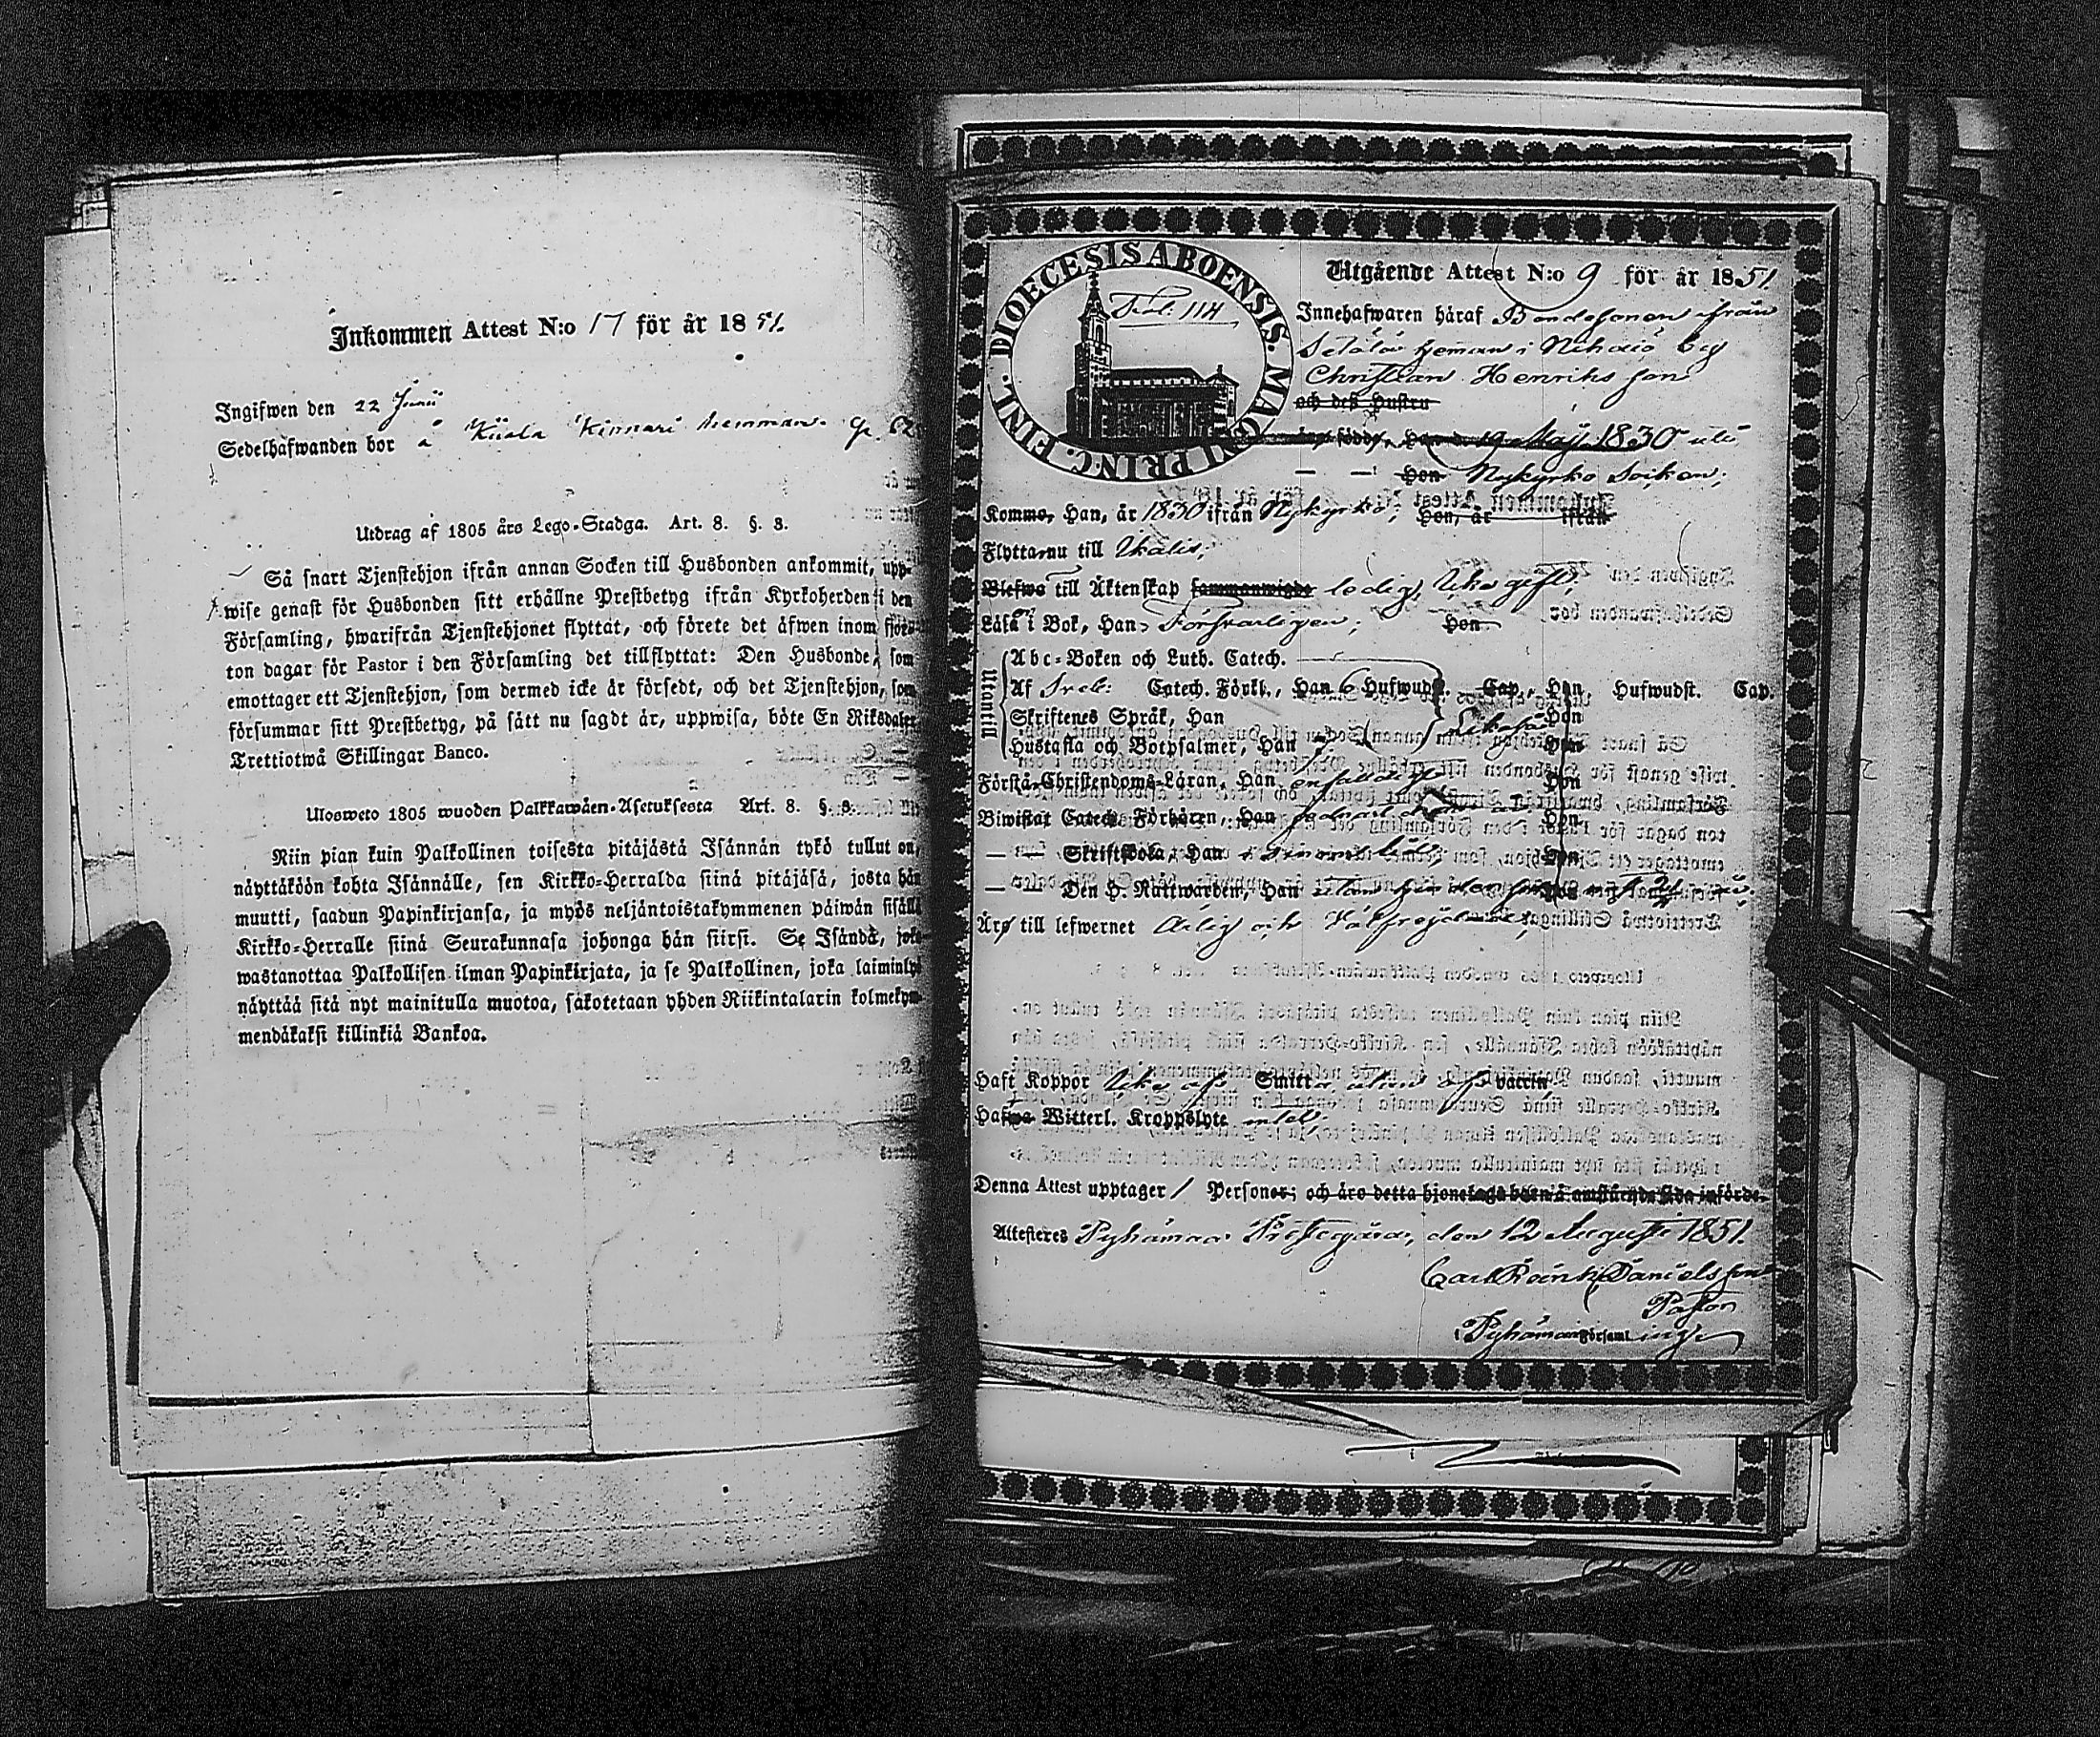 Inkommen Attest N:o 17 för år 1851.
Ingifwen den 22 Junii
Sedelhafwanden bor å Kiiala Kinnari hemman.
Utdrag af 1805 års Lego-Stadga. Art. 8. §. 3.
Så snart Tjenstehjon ifrån annan Socken till Husbonden ankommit, upp-
wise genast för Husbonden sitt erhållne Prestbetyg ifrån Kyrkoherden i den
Församling, hwarifrån Tjenstehjonet flyttat, och förete det äfwen inom fjor-
ton dagar för Pastor i den Församling det tillflyttat: Den Husbonde, som
emottager ett Tjenstehjon, som dermed icke är försedt, och det Tjenstehjon, som
försummar sitt Prestbetyg, på sätt nu sagdt är, uppwisa, böte En Riksdaler
Trettiotwå Skillingar Banco.
Ulosweto 1805 wuoden Palkkawäen-Asetuksesta Art. 8. §. 3.
Niin pian kuin Palkollinen toisesta pitäjästä Isännän tykö tullut on,
näyttäköön kohta Isännälle, sen Kirkko-Herralda siinä pitäjäsä, josta hän
muutti, saadun Papinkirjansa, ja myös neljäntoistakymmenen päiwän sisällä
Kirkko-Herralle siinä Seurakunnasa johonga hän siirsi. Se Isändä, joka
wastanottaa Palkollisen ilman Papinkirjata, ja se Palkollinen, joka laiminlyö
näyttää sitä nyt mainitulla muotoa, sakotetaan yhden Riikintalarin kolmekym-
mendäkaksi killinkiä Bankoa.
DIOECESIS ABOENSIS. MAGNI PRINC. FINL.
Fol. 114
Utgående Attest N:o 9 för år 1851.
Innehafwaren häraf Bondesonen ifrån
Setälä heman i Nihaiö by
Christian Henriksson
och dess Hustru
födde, Han d. 19 Maji 1830 uti
— — Hon Nykyrko Sockan;
Komme, Han, år 1830 ifrån Nykyrko; Hon, år ifrån
Flytta nu till Ukalis;
Blefwe till Äktenskap sammanwigde ledig, Icke gift;
Läsa i Bok, Han Försvarligen; Hon
Utantill
Abc-Boken och Luth. Catech.
Af Sveb: Catech. Förkl., Han 6 Hufwudst. Cap., Hon Hufwudst. Cap.
Skriftenes Språk, Han Hon
Hustafla och Botpsalmer, Han Hon
Förstå Christendoms-Läran, Han Hon
Biwistat Catech. Förhören, Han Hon
— — Skriftskola, Han Hon
— — Den H. Nattwarden, Han
Äro till lefwernet Ärlig och Välfrejdad;
Haft Koppor Smitta vaccin
Hafwa Witterl. Kroppslyte intet;
Denna Attest upptager 1 Personer; och äro detta hjonelags barn å omstående sida införde.
Attesteres Pyhämaa Prestegård, den 12 Augusti 1851.
Carl Reink. Danielsson
Pastor
i Pyhämaa Församling